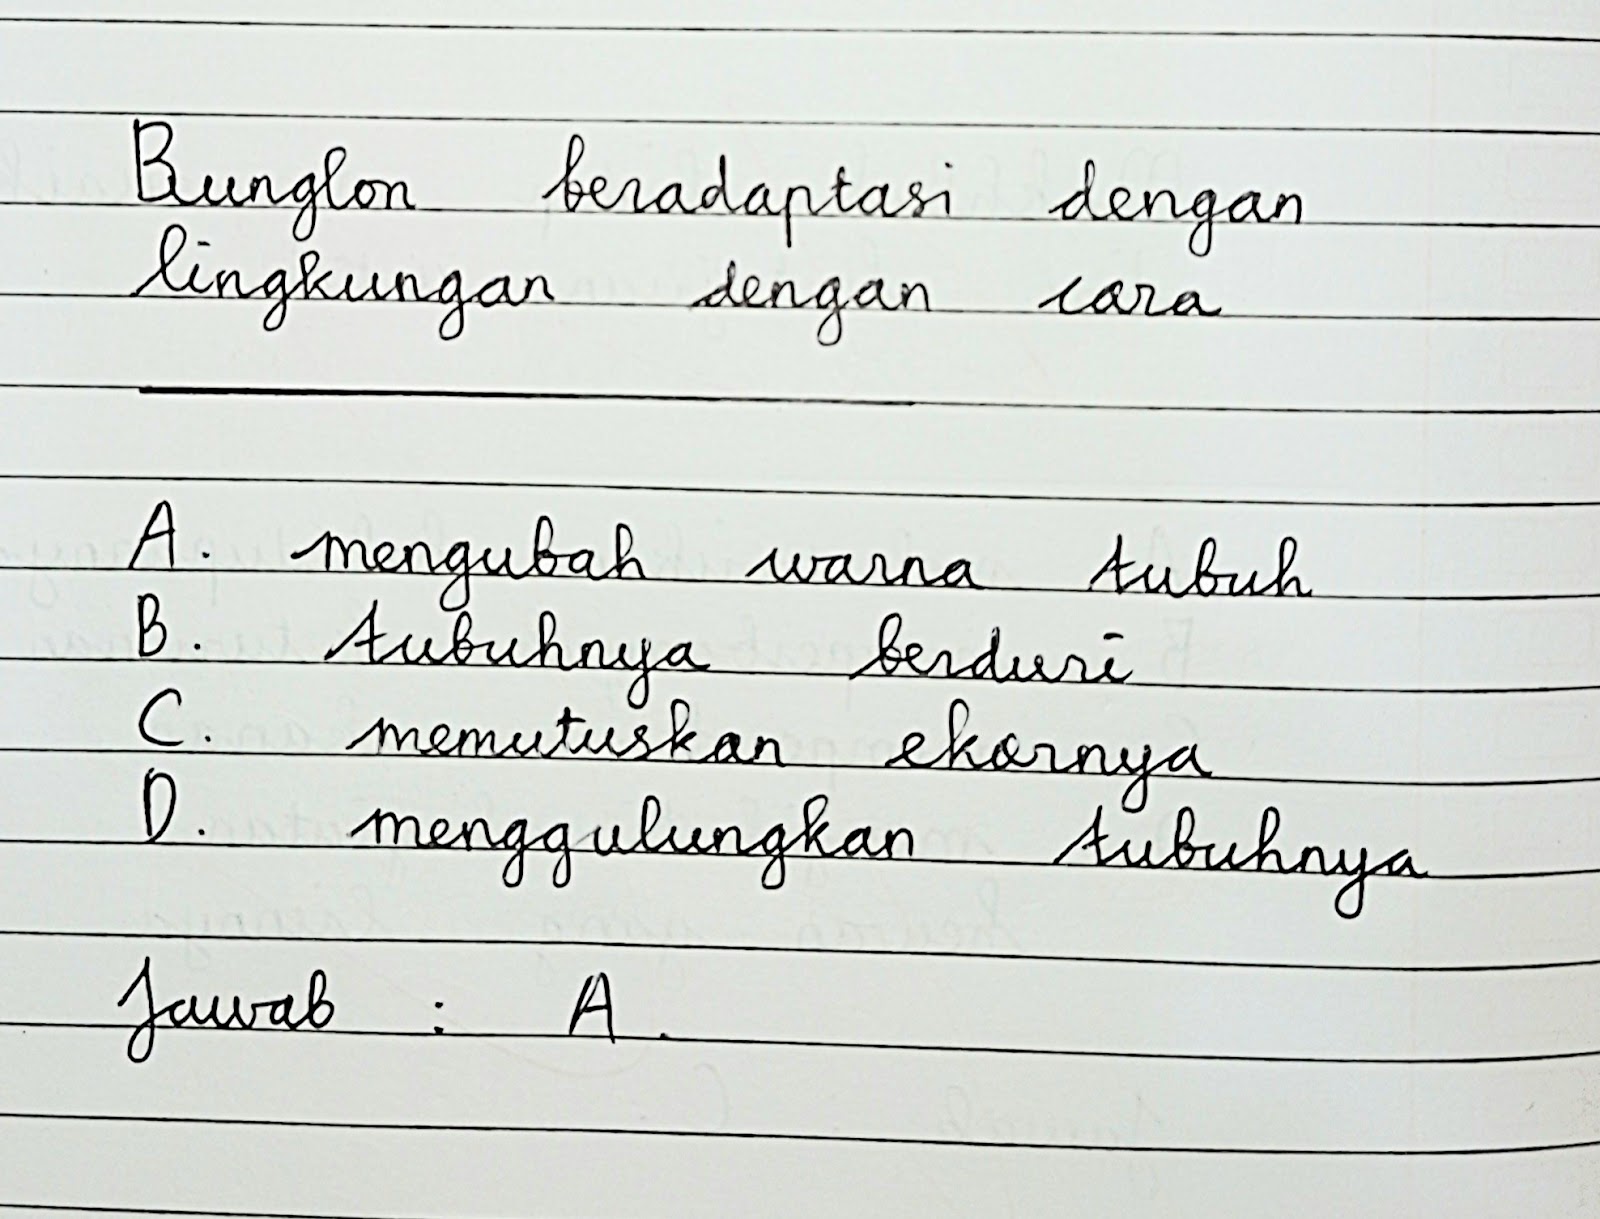 Bunglon beradaptasi dengan
lingkungan dengan cara
A. mengubah warna tubuh
B. tubuhnya berduri
C. memutuskan ekornya
D. menggulungkan tubuhnya
Jawab : A.